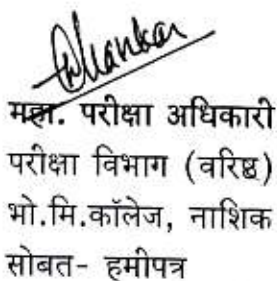 महा. परीक्षा अधिकारी
परीक्षा विभाग (वरिष्ठ)
भो.मि.कॉलेज, नाशिक
सोबत- हमीपत्र